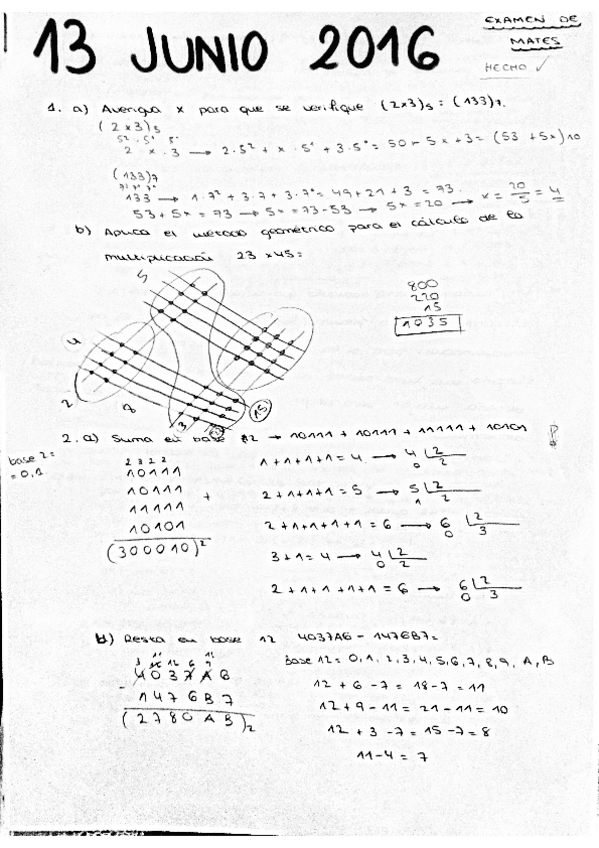 13 JUNIO 2016
EXAMEN DE
MATES
HECHO ✓
1. a) Averigua x para que se verifique (2x3)₅ = (133)₇.
(2x3)₅
5² · 5¹ 5⁰
2 · x · 3 → 2·5² + x·5¹ + 3·5⁰ = 50 + 5x + 3 = (53 + 5x)10
(133)₇
7² 7¹ 7⁰
133 → 1·7² + 3·7 + 3·7⁰ = 49 + 21 + 3 = 73.
53 + 5x = 73 → 5x = 73 - 53 → 5x = 20 → x = 20/5 = 4
b) Aplica el método geométrico para el cálculo de la
multiplicación 23 x 45 =
5
4
2
8
3
15
800
220
15
1035
2. a) Suma en base 2 → 10111 + 10111 + 11111 + 10101
base 2 =
= 0, 1.
2 3 2 2
10111
10111
11111 +
10101
(300010)²
1+1+1+1 = 4 → 4 | 2
0 2
2+1+1+1 = 5 → 5 | 2
1 2
2+1+1+1+1 = 6 → 6 | 2
0 3
3+1 = 4 → 4 | 2
0 2
2+1+1+1+1 = 6 → 6 | 2
0 3
b) Resta en base 12 4037A6 - 1476B7 =
4037A6
- 1476B7
(2780AB)₂
base 12 = 0, 1, 2, 3, 4, 5, 6, 7, 8, 9, A, B
12 + 6 - 7 = 18 - 7 = 11
12 + 9 - 11 = 21 - 11 = 10
12 + 3 - 7 = 15 - 7 = 8
11 - 4 = 7